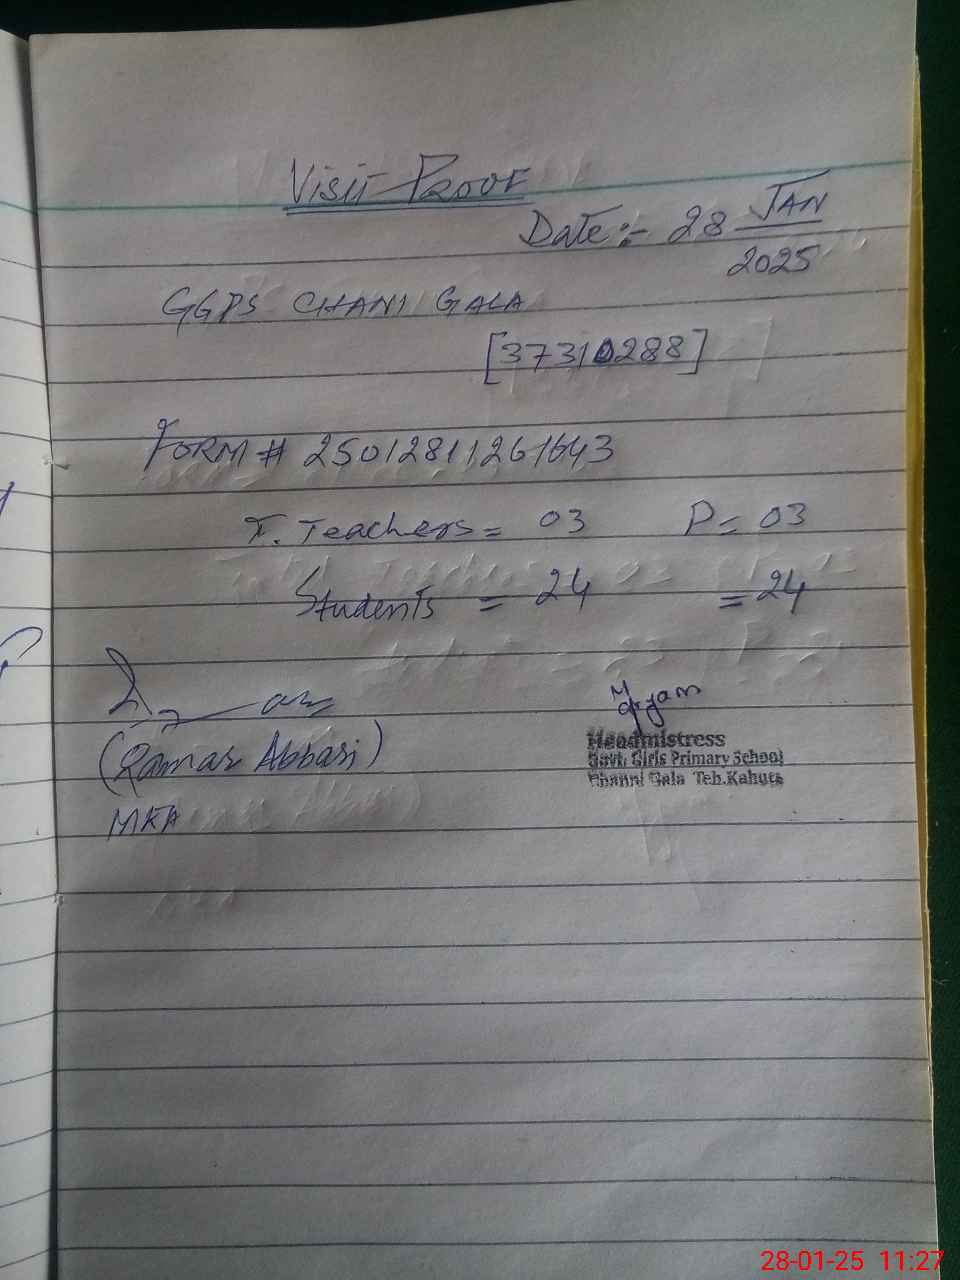 Visit Proof
Date:- 28 JAN
2025
GGPS CHANI GALA
[37310288]
FORM # 25012811261643
T. Teachers = 03 P = 03
Students = 24 = 24
(Qamar Abbasi)
MEA
Headmistress
Govt. Girls Primary School
Channi Gala Teh.Kahuta
28-01-25 11:27